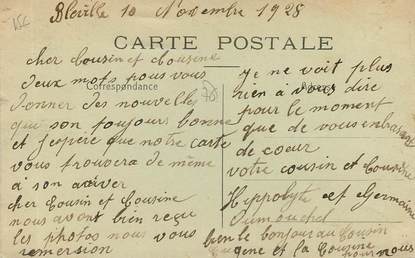 Bleville 10 Novembre 1928
CARTE POSTALE
Correspondance
cher Cousin et Cousine
deux mots pous vous
donner des nouvelles
qui son toujours bonne
et j'espère que notre carte
vous trouvera de même
à son ariver
cher Cousin et Cousine
nous avont bien reçu
les photos nous vous
remersion
je ne voit plus
rien a vous dire
pour le moment
que de vous embrasser
de cœur
votre cousin et Cousine
Hippolyte et Germaine
Dumouchel
bien le bonjour au Cousin
Eugene et la Cousine
pour nous